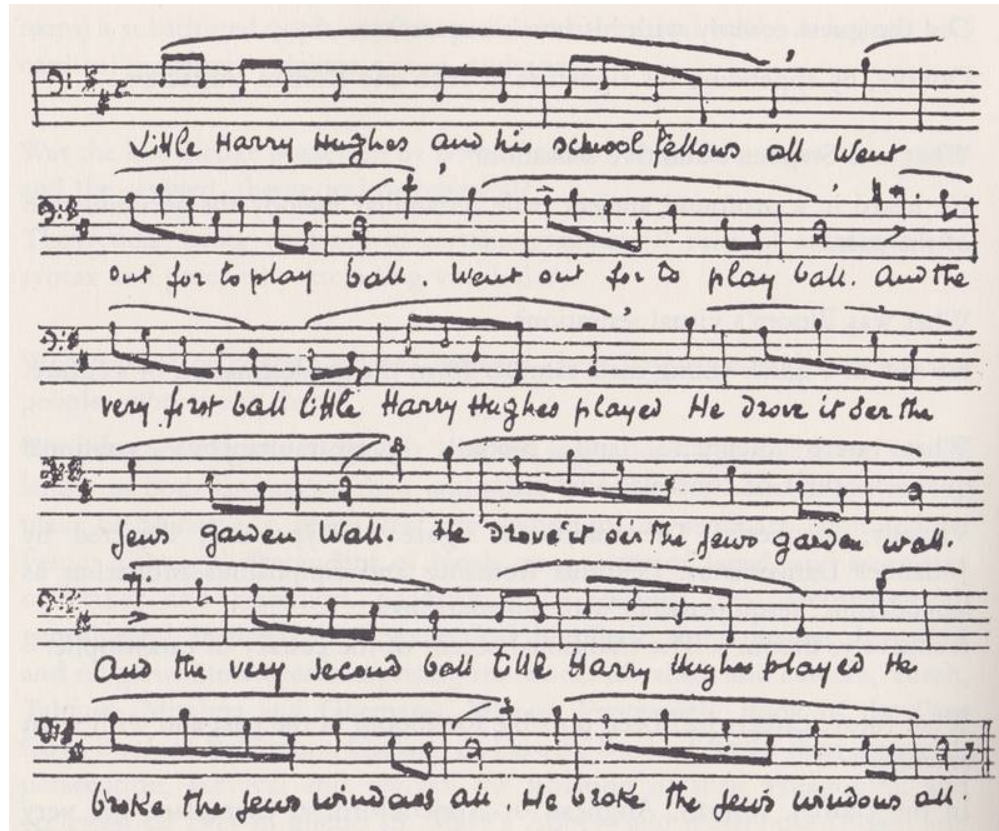 Little Harry Hughes and his school fellows all Went
out for to play ball. Went out for to play ball. And the
very first ball little Harry Hughes played He drove it o'er the
jews garden wall. He drove it o'er the jews garden wall.
And the very second ball little Harry Hughes played He
broke the jews windows all. He broke the jews windows all